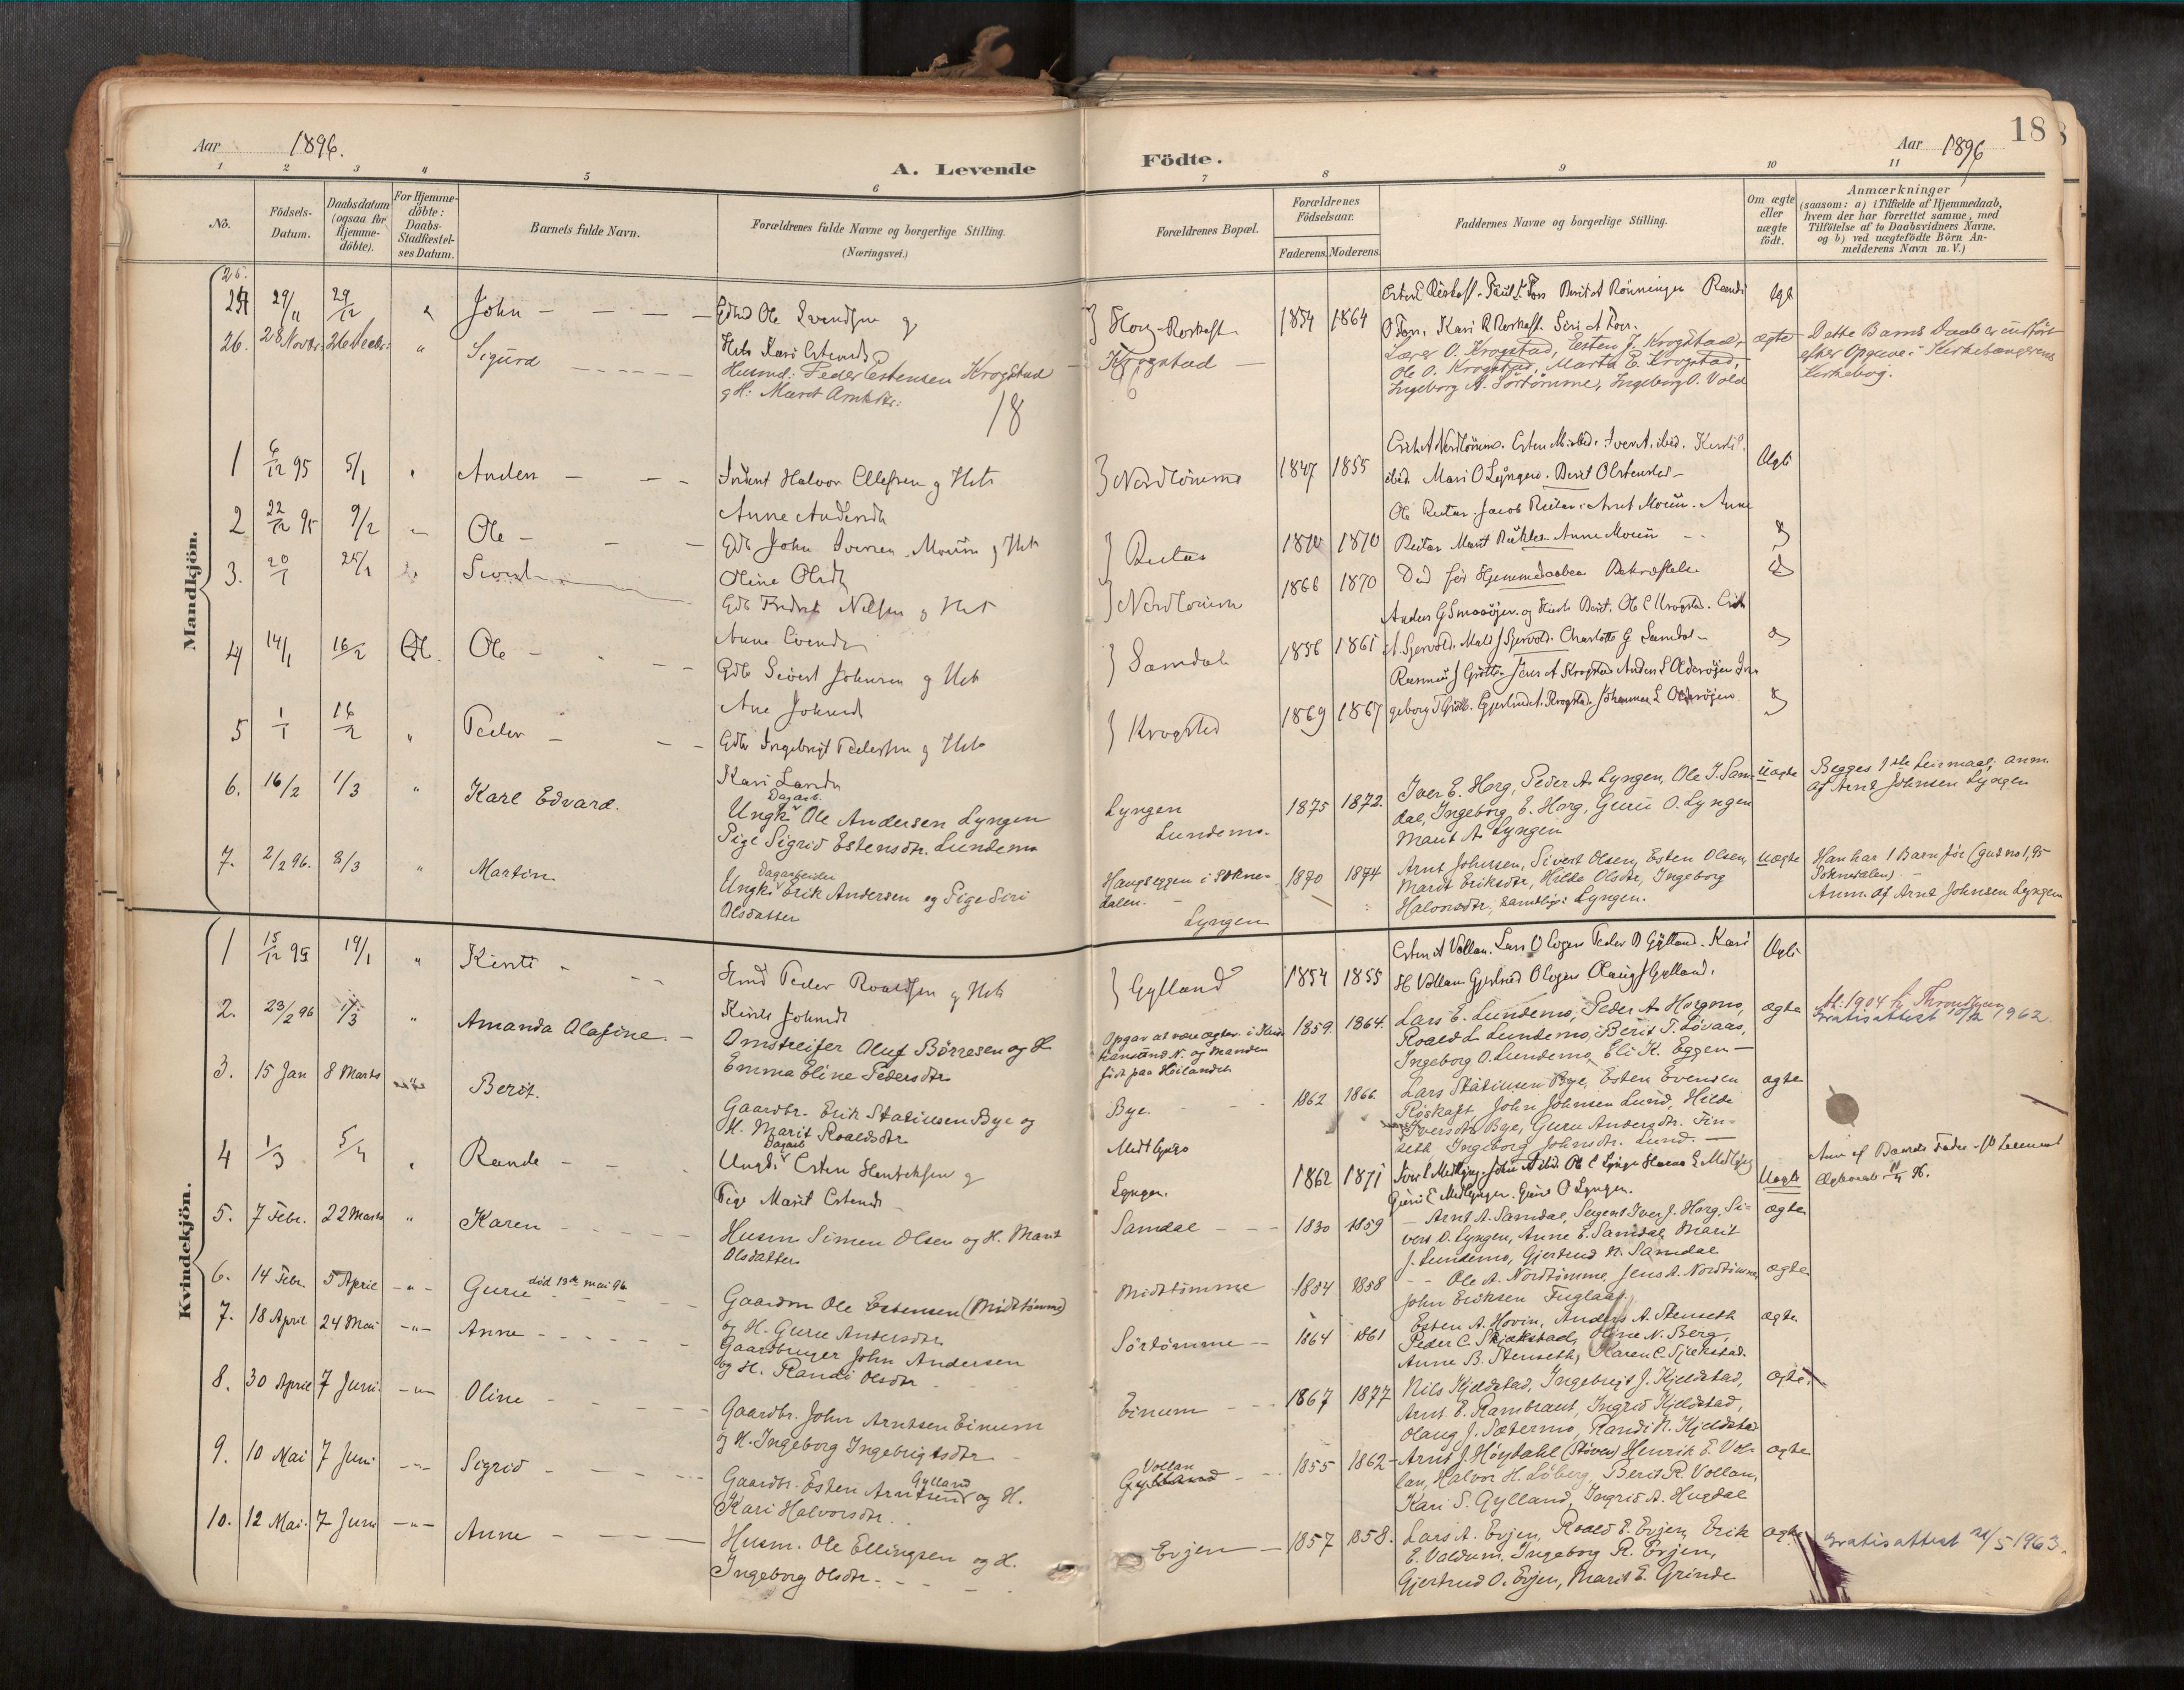 Aar 1896.
A. Levende
Födte.
Aar 1896
18
1 2 3 4 5 6 7 8 9 10 11
No.
Födsels-
Datum.
Daabsdatum
(ogsaa for
Hjemme-
döbte).
For Hjemme-
döbte:
Daabs-
Stadfæstel-
ses Datum.
Barnets fulde Navn.
Forældrenes fulde Navne og borgerlige Stilling.
(Næringsvei.)
Forældrenes Bopæl.
Forældrenes
Födselsaar.
Faderens. Moderens.
Faddernes Navne og borgerlige Stilling.
Om ægte
eller
uægte
födt.
Anmærkninger
(saasom: a) i Tilfælde af Hjemmedaab,
hvem der har forrettet samme, med
Tilföielse af to Daabsvidners Navne.
og b) ved uægtefödte Börn An-
melderens Navn m. V.)
Mandkjön.
25.
29/11 29/12 John
Ole
Horg-Roskaft
1854 1864
O Foss. Kari R Roskaft. Siri A Foss.
26. 28 Novbr. 26 Decbr. " Sigurd
Husmd: Peder Estensen Krogstad
g H: Marit Arntsdtr:
Krogstad
Lærer O. Krogstad, Esten J. Krogstad,
Ole O. Krogstad, Marta E. Krogstad,
Ingeborg A. Sörtömme, Ingeborg O. Vold
ægte
Dette Barns Daab er indfört
efter Opgave i Kirkesangerens
Kirkebog.
18
1 6/12 95 5/1 " Anders
Halvor Ellefsen g Hst
Anne Andersdt
Nordtömme
1847 1855
ibid. Mari O Lyngen. Berit O Estensdt
Ægte
2 22/12 95 9/2 " Ole
Gdb John Iversen Moum g Hst
Oline Olsdt
Reitan
1870 1870
Reitan Anne Moum
3. 20/1 25/1 Sivert
Gdb Fredrik Nilsen g Hst
Anne Evensdt
Nordtömme
1866 1870
Död för Hjemmedaabens Bekræftelse
4 14/1 16/2 Ole
Gdb Sivert Johnsen g Hst
Ane Johnsdt
Samdal
1856 1861
A. Gjervold. Charlotte G Samdal
5 1/1 16/2 " Peder
Gdb Ingebrigt Pedersen g Hst
Kari Larsdt
Krogstad
1869 1867
6. 16/2 1/3 " Karl Edvard.
Dagarb.
Ungk. Ole Andersen Lyngen
Pige Sigrid Estensdtr. Lundemo
Lyngen
Lundemo.
1875 1872.
Iver E. Horg, Peder A. Lyngen, Ole J. Sam-
dal, Ingeborg E. Horg, Guru O. Lyngen
Marit A. Lyngen
Uægte
Begges 1ste Leiermaal; anm.
af Arnt Johnsen Lyngen
7. 2/2 96. 8/3 " Martin.
Dagarbeider
Ungk. Erik Andersen og Pige Siri
Olsdatter
Haugseggen i Sokne-
dalen.
Lyngen
1870 1874
Arnt Johnsen, Sivert Olsen, Esten Olsen,
Marit Eriksdtr, Hilda Olsdtr, Ingeborg
Halvorsdtr, samtlige: Lyngen.
Uægte
Han har 1 Barn för
Soknedalen)
Anm. af Arnt Johnsen Lyngen
Kvindekjön.
1 15/12 95 19/1 " Kirsti
Hmd Peder Roaldsen g Hst
Kirsti Johnsdt
Gylland
1854 1855
Esten A Vollan. Lars O Logen Peder D Gylland. Kari
H Vollan Gjertrud O Logen Olaug J Gylland.
Ægte
2. 23/2 96 1/3 " Amanda Olafine.
Omstreifer Oluf Börresen og H.
Emma Eline Pedersdtr.
Opgav at være ægtev. i Kris-
tianssund N. og Manden
födt paa Höilandet
1859. 1864.
Lars E. Lundemo, Peder A. Horgemo,
Roald L. Lundemo, Berit T. Lövaas,
Ingeborg O. Lundemo, Eli K. Eggen
ægte
At. 1904 til Throndhjem
Gratisattest 10/12 1962
3. 15 Jan 8 Marts Berit.
Gaardbr. Erik Statiusen Bye og
H. Marit Roaldsdtr.
Bye.
1862 1866
Lars Statiusen Bye, Esten Evensen
Röskaft, John Johnsen Lund, Hilda
Iversdtr. Bye, Guru Andersdtr. Fin-
seth, Ingeborg Johnsdtr. Lund.
ægte
4 1/3 5/4 " Rande
Dagarb
Ungk. Esten Henriksen g
Pige Marit Estensdt
Midtlyng
Lyngen.
1862 1871
Guri E Midtlyngen. Guri O Lyngen.
Uægte
Anm af Barnets Fader
5. 7 Febr. 22 Marts " Karen
Husm Simen Olsen og H. Marit
Olsdatter
Samdal
1830 1859
Arnt A. Samdal, Sergent Iver J. Horg, Si-
vert O. Lyngen, Anne E. Samdal, Marit
J. Lundemo, Gjertrud N. Samdal
ægte
6. 14 Febr. 5 April -"- Guru död 13de mai 96
Gaardm Ole Estensen (Midttömme)
og H. Guru Andersdtr.
Midttömme
1854 1858
Ole A. Nordtömme, Jens A. Nordtömme,
John Eriksen Fuglaas.
ægte
7. 18 April 24 Mai -"- Anne
Gaardbruger John Andersen
og H. Randi Olsdtr
Sörtömme
1864 1861
Esten A. Hovin, Anders A. Stenseth
Peder C. Skjækstad, Oline N. Berg,
Anne B. Stenseth, Karen C. Sjækstad.
ægte
8. 30 April 7 Juni -"- Oline
Gaardbr. John Arntsen Einum
og H. Ingeborg Ingebrigtsdtr
Einum
1867 1877
Nils Kjeldstad, Ingebrigt J. Kjeldstad,
Arnt E. Rambraut, Ingrid Kjeldstad,
Olaug J. Sætermo, Randi N. Kjeldstad
ægte.
9. 10 Mai 7 Juni -"- Sigrid
Gaardbr. Esten Arntsen Gylland og H.
Kari Halvorsdtr.
Vollan
Gylland
1855 1862
Arnt J. Höydahl (Stören) Henrik E. Vol-
lan, Halvor H. Löberg, Berit R. Vollan,
Kari S. Gylland, Ingrid A. Hugdal
ægte
10. 12 Mai. 7 Juni -"- Anne
Husm. Ole Ellingsen og H.
Ingeborg Olsdtr.
Evjen
1857 1858.
Lars A. Evjen, Roald E. Evjen, Erik
E. Valdum, Ingeborg R. Evjen,
Gjertrud O. Evjen, Marit E. Grinde
ægte
Gratisattest 21/5 1963.